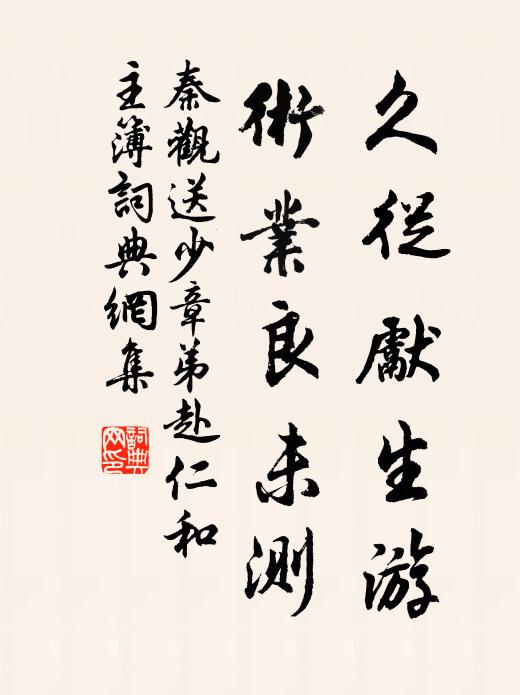 久從獻生游
術業良未測
秦觀送少章弟赴仁和
主簿詞典網集
詞典
网印